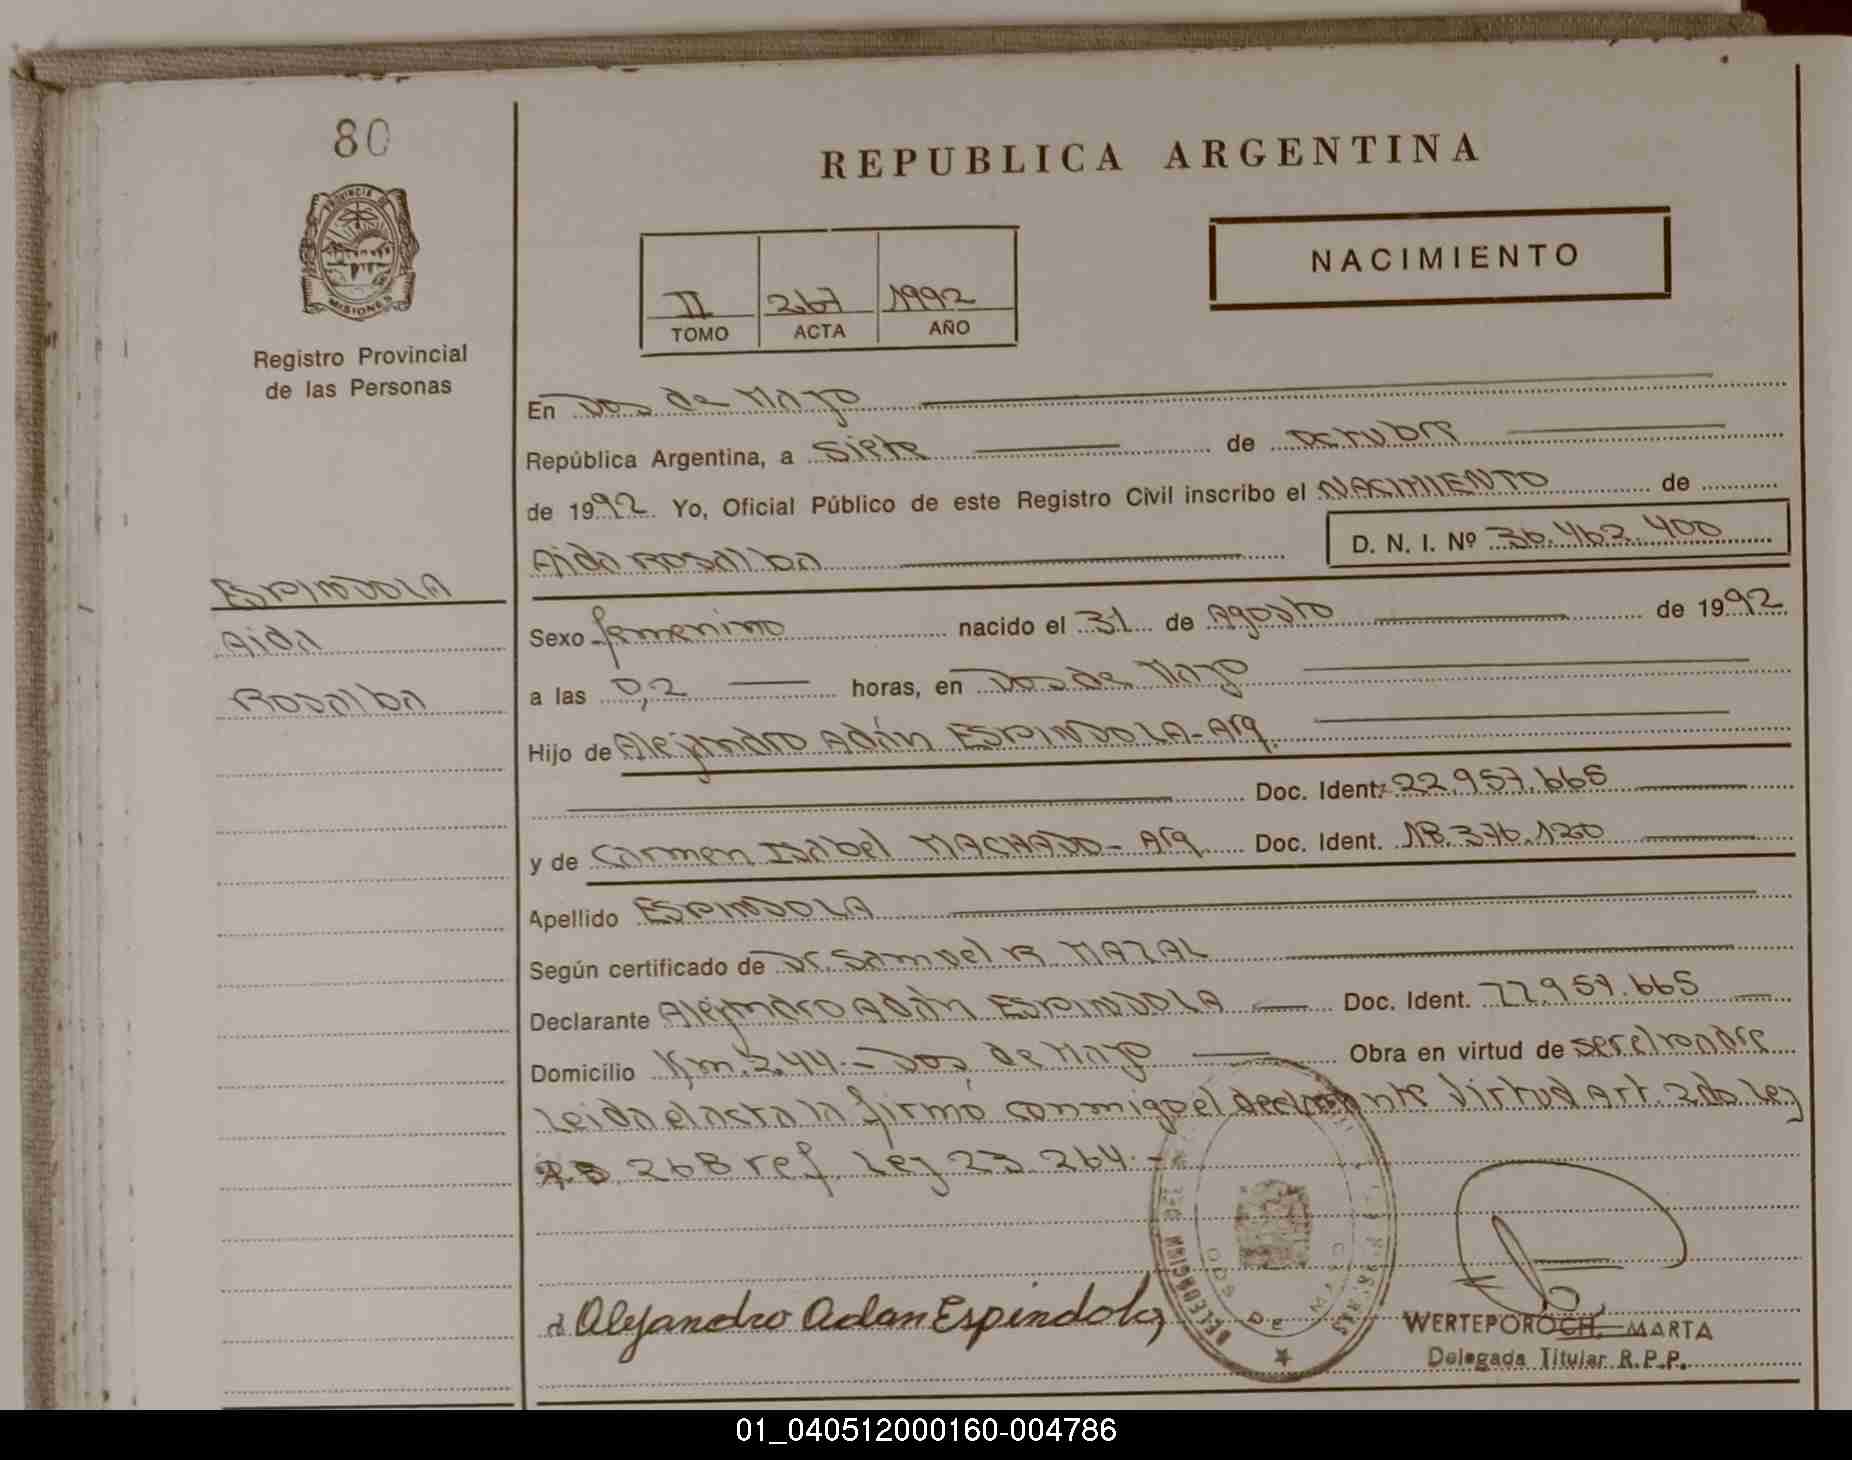 80
PROVINCIA DE
MISIONES
Registro Provincial
de las Personas
ESPINDOLA
Aida
Rosalba
REPUBLICA ARGENTINA
NACIMIENTO
II 267 1992
TOMO ACTA AÑO
En Dos de Mayo
República Argentina, a siete de octubre
de 1992 Yo, Oficial Público de este Registro Civil inscribo el NACIMIENTO de
Aida Rosalba D. N. I. Nº 36.462.400
Sexo femenino nacido el 31 de Agosto de 1992
a las 0,2 horas, en Dos de Mayo
Hijo de Alejandro Adán ESPINDOLA-Arg.
Doc. Ident. 22.957.665
y de Carmen Isabel MACHADO- Arg Doc. Ident. 18.376.120
Apellido ESPINDOLA
Según certificado de Dr. Samuel R MAZAL
Declarante Alejandro Adán ESPINDOLA Doc. Ident. 22.957.665
Domicilio Km. 244.- Dos de Mayo Obra en virtud de ser el padre
Leida el acta la firmó conmigo el declarante Virtud Art. 2do Ley
268 ref. Ley 23.264.-
Alejandro Adan Espindola
DELEGACION
DOS DE
WERTEPOROCH, MARTA
Delegada Titular R.P.P.
01_040512000160-004786